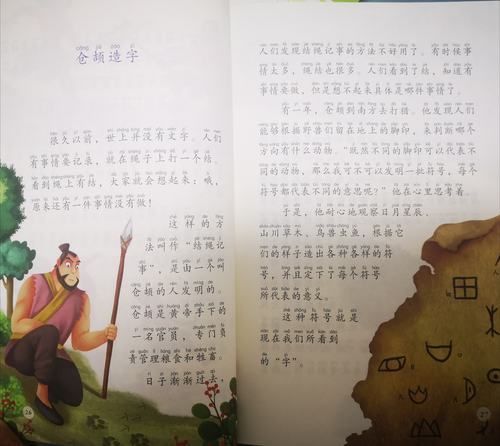 仓颉造字
很久以前，世上并没有文字，人们
有事情要记录，就在绳子上打一个结。
看到绳上有结，大家就会想起来：哦，
原来还有一件事情没有做！
这样的方
法叫作“结绳记
事”，是由一个叫
仓颉的人发明的。
仓颉是黄帝手下的
一名官员，专门负
责管理粮食和牲畜。
日子渐渐过去，
26
人们发现结绳记事的方法不好用了。有时候事
情太多，绳结也很多。人们看到了结，知道有
事情要做，但是想不起来具体是哪件事情了。
有一年，仓颉到南方去打猎。他发现人们
能够根据野兽们留在地上的脚印，来判断哪个
方向有什么动物。“既然不同的脚印可以代表不
同的动物，那么我可不可以发明一批符号，每个
符号都代表不同的意思呢？”他在心里思考着。
于是，他耐心地观察日月星辰、
山川草木、鸟兽虫鱼，根据它
们的样子造出各种各样的符
号，并且定下了每个符号
所代表的意义。
这种符号就是
现在我们所看到
的“字”。
27